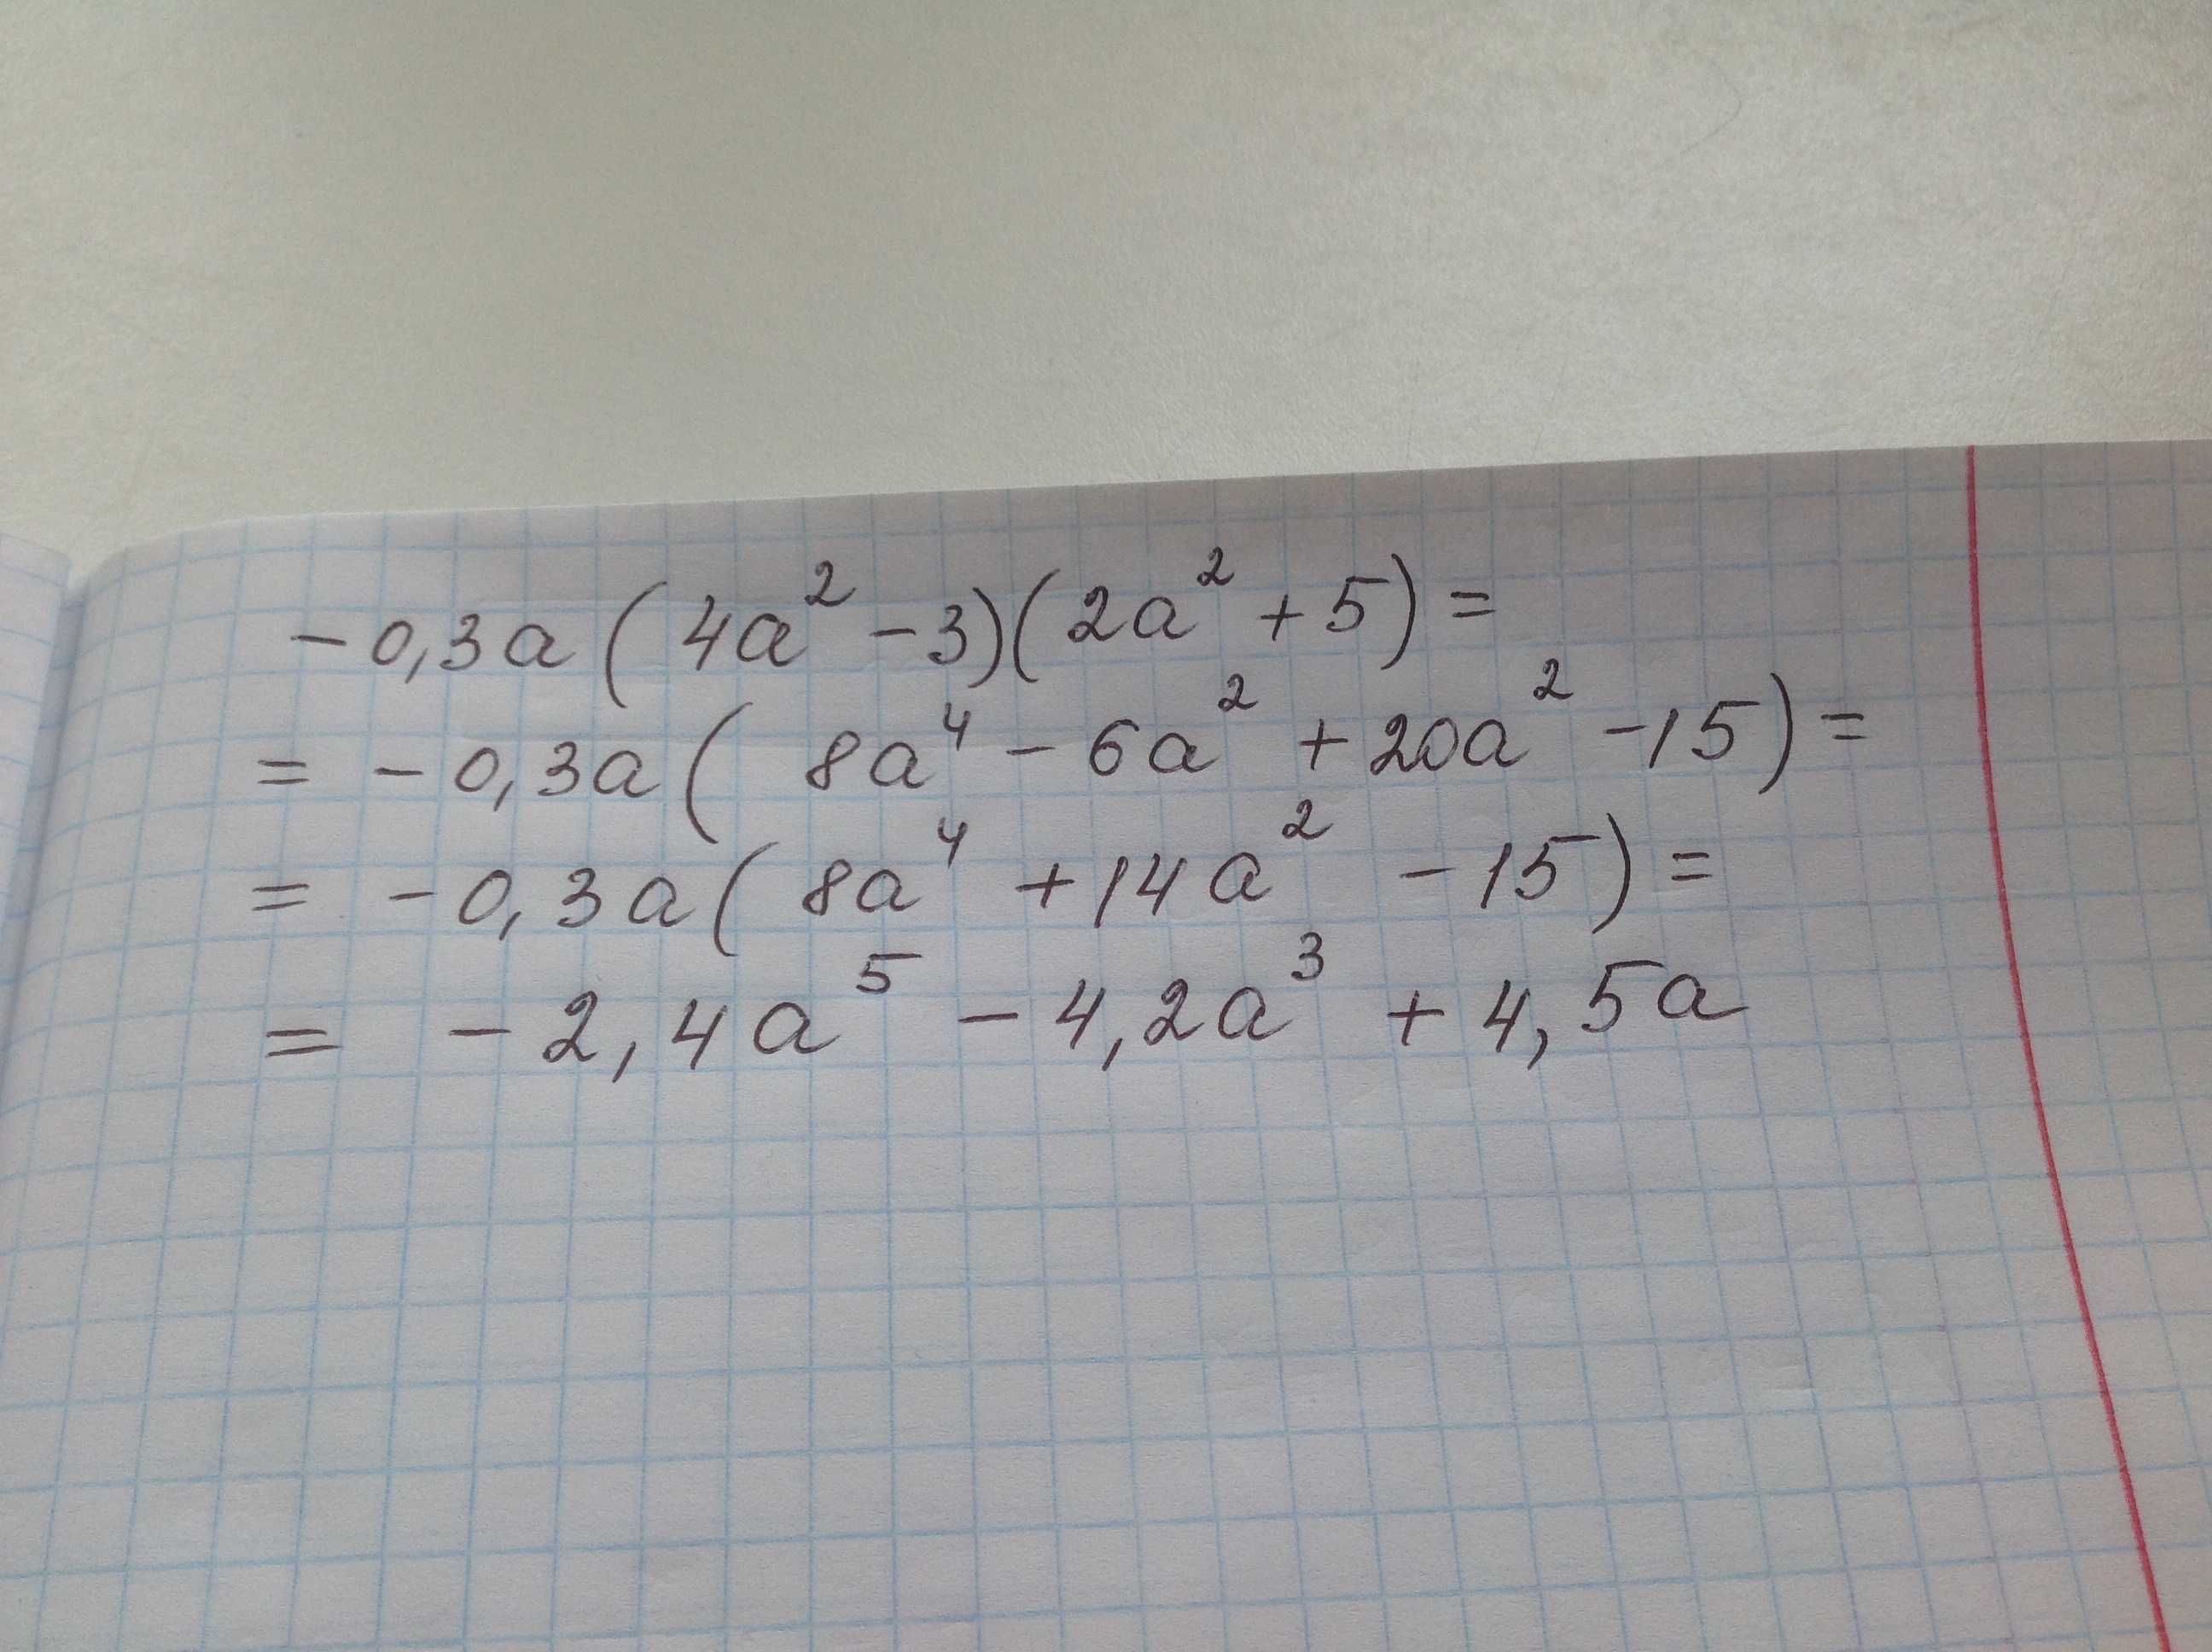 -0,3a(4a² -3)(2a² +5)=
= -0,3a( 8a⁴ - 6a² +20a² -15)=
= -0,3a( 8a⁴ +14a² -15)=
= -2,4a⁵ -4,2a³ +4,5a